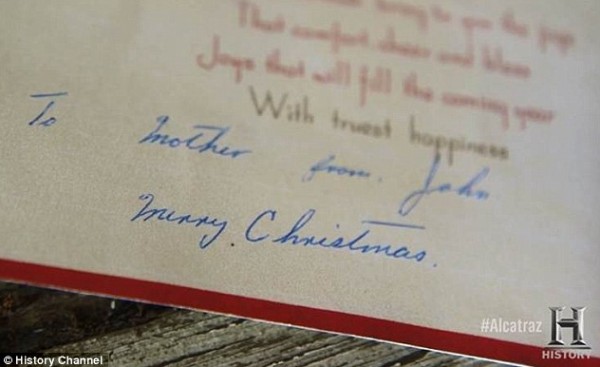 to you the joys
That comfort, cheer and bless
Joys that will fill the coming year
With truest happiness
To Mother from. John
Merry Christmas.
#Alcatraz H
HISTORY
© History Channel